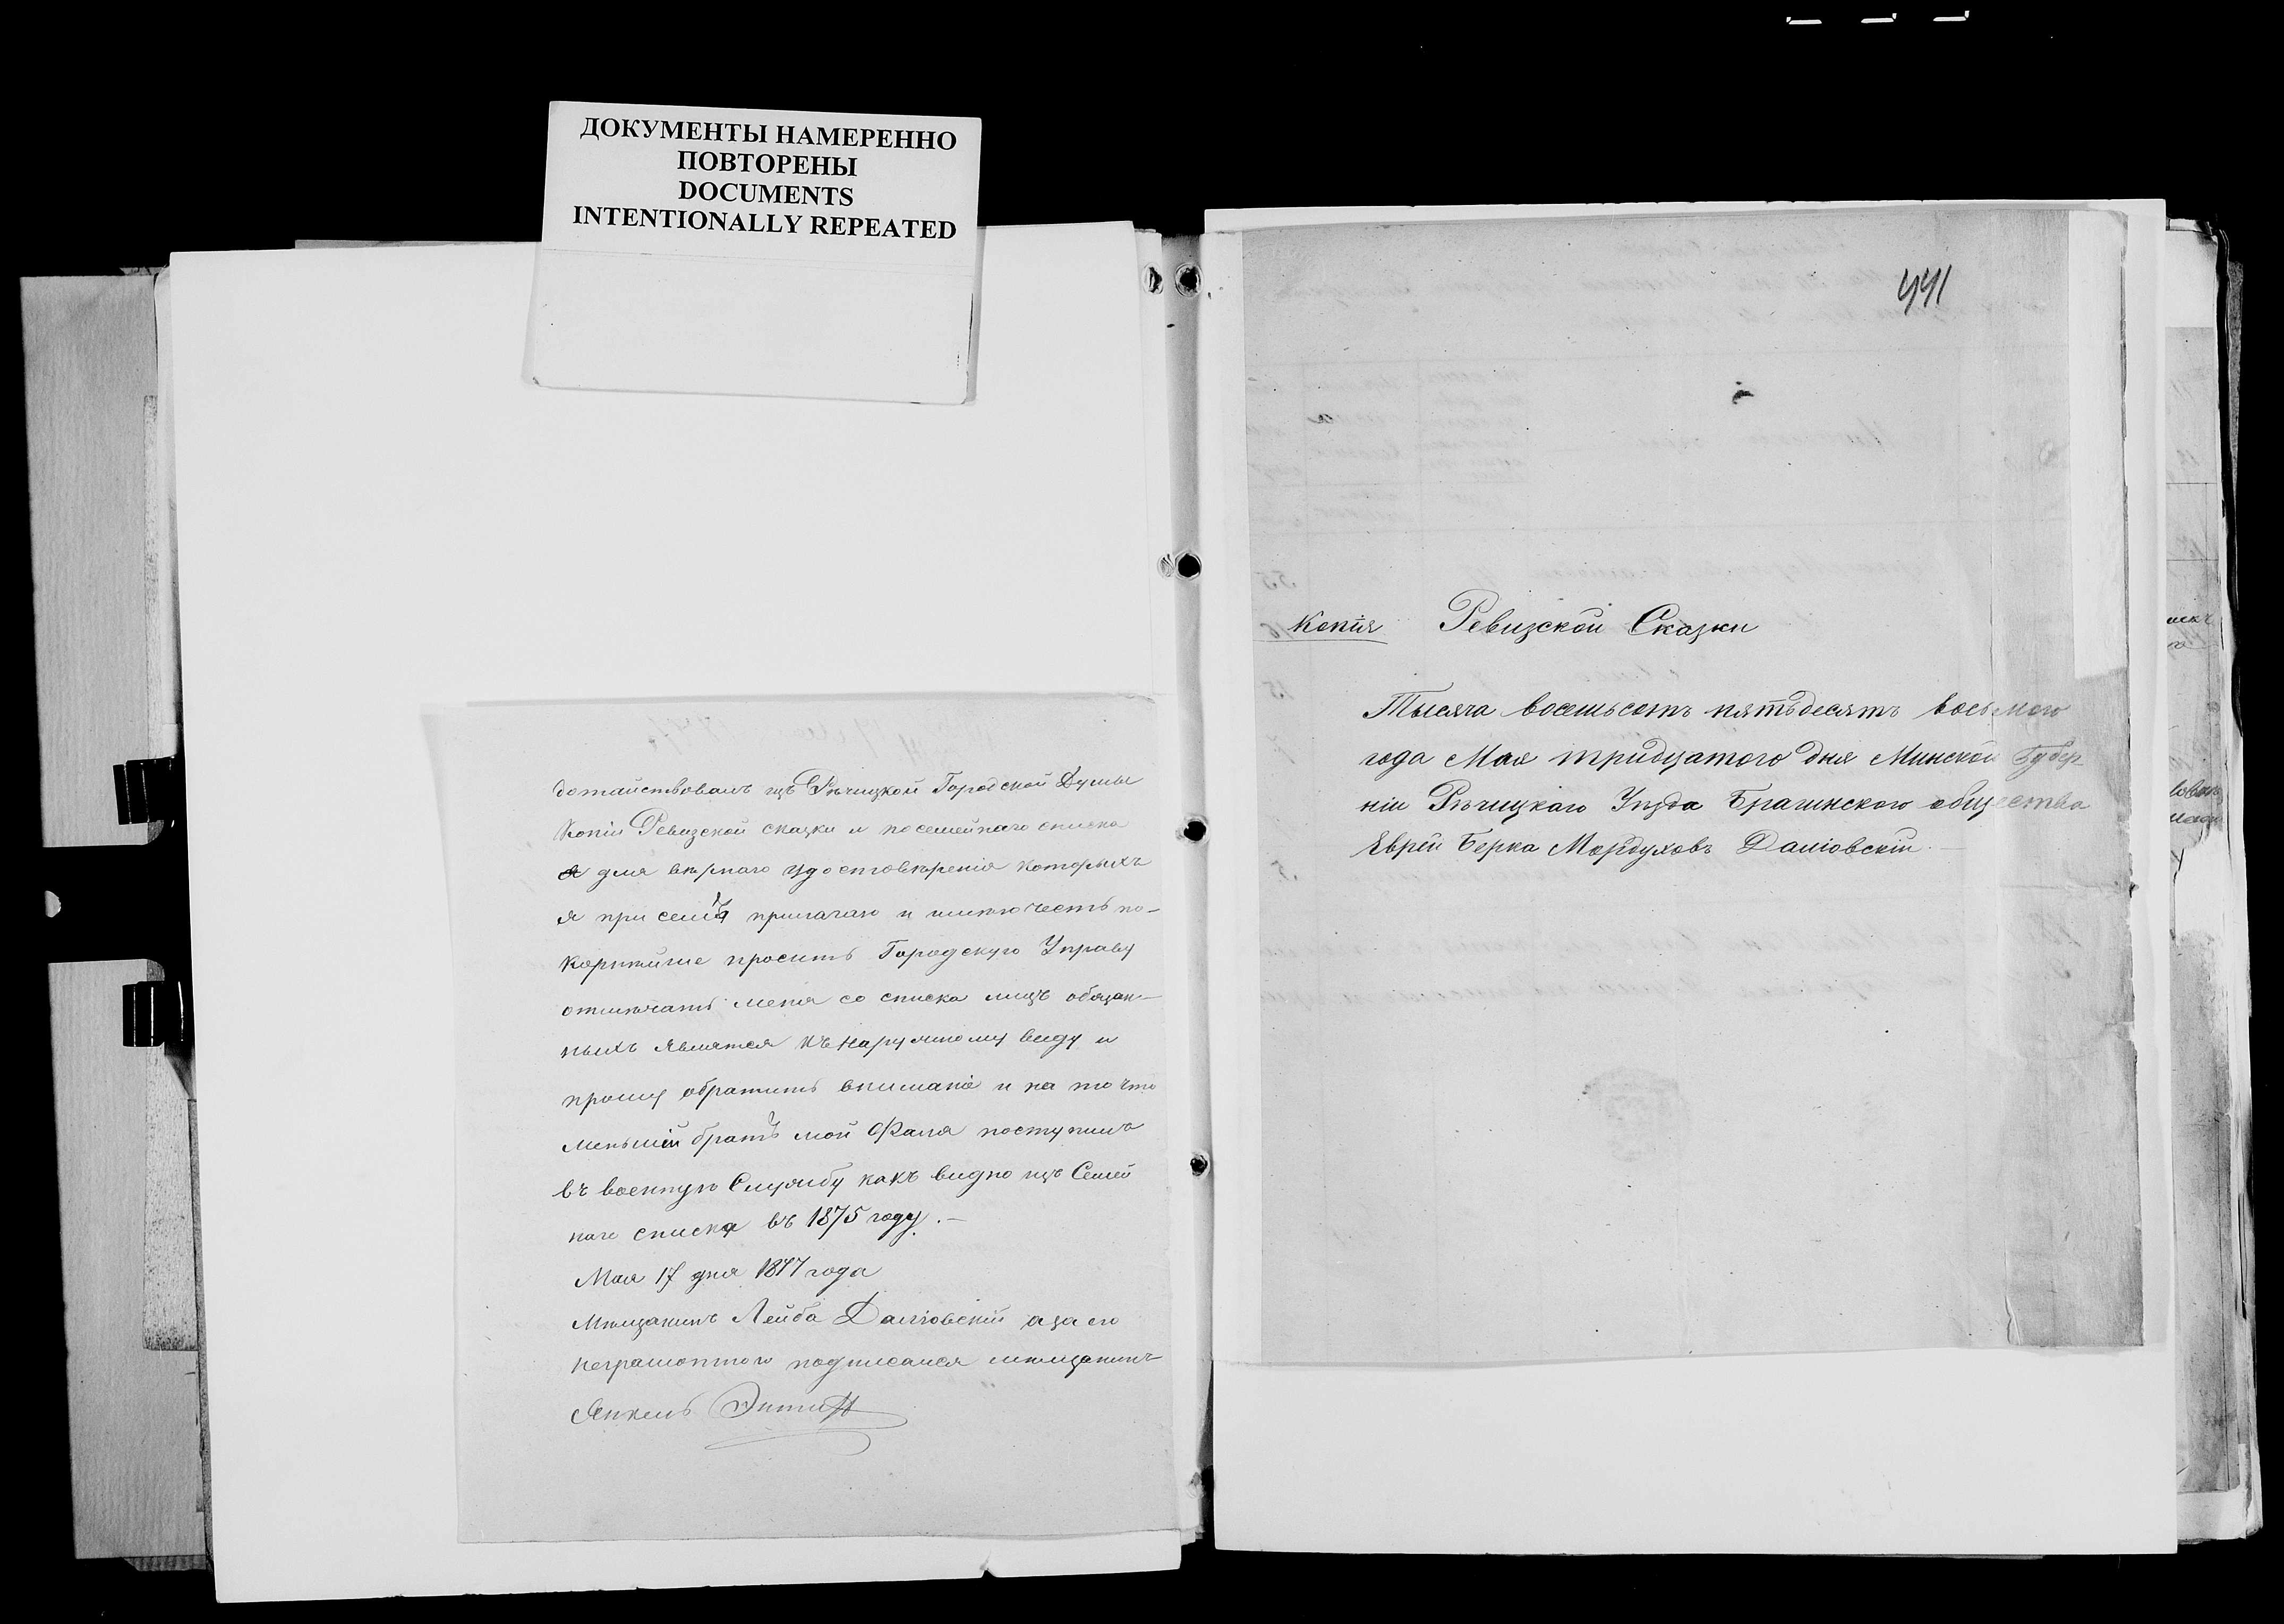 ДОКУМЕНТЫ НАМЕРЕННО
ПОВТОРЕНЫ
DOCUMENTS
INTENTIONALLY REPEATED
дотайствовалъ изъ Рѣчицкой Городской Думы
Копіи Ревизской сказки и посемейнаго списка
для вѣрнаго удостовѣренія которыхъ
я при семъ прилагаю и имѣю честь по-
корнѣйше просить Городскую Управу
отмѣчать меня со списка лицъ обязан-
ныхъ явится къ наружному виду и
прошу обратить вниманіе и на то что
меньшій братъ мой Фаля поступилъ
въ военную Службу какъ видно изъ Семей
наго списка въ 1875 году.-
Мая 17 дня 1877 года
Мѣщанинъ Лейба Даліовскій а за его
неграмотного подписался мѣщанинъ
Янкель
441
Копія Ревизской Сказки
Тысяча восемьсотъ пятьдесятъ восьмого
года Мая тридцатого дня Минской Губер-
ніи Рѣчицкаго Уѣзда Брагинского общества
Еврей Берка Мордуховъ Даліовскій.-